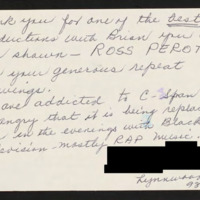 k you for one of the best
ductions with Brian you
shown - ROSS PEROT
you generous repeat
wings.
one addicted to C-Span
angry that it is being replac
in the evenings with Black
vision mostly RAP Music.
Lynnwood
98